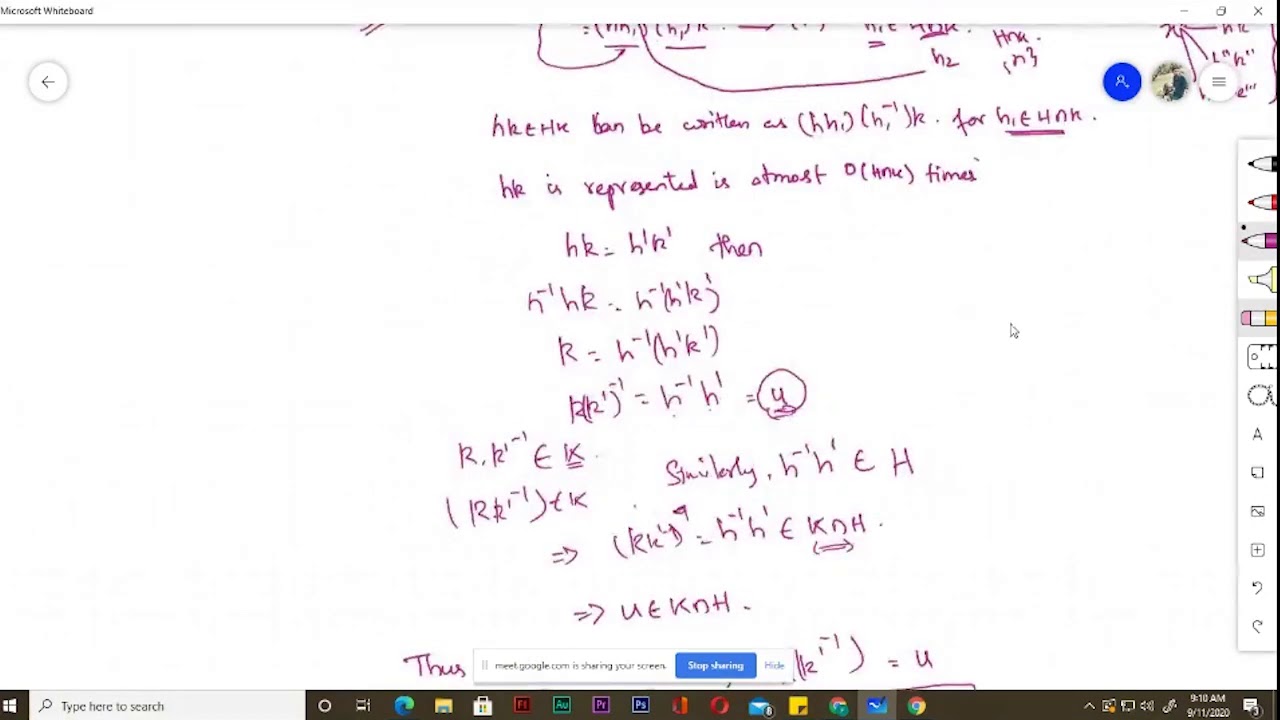 Microsoft Whiteboard
h₂
H∩K.
hk∈HK can be written as (hh₁)(h₁⁻¹)k. for h₁∈H∩K.
hk is represented is atmost O(H∩K) times
hk = h'k' then
h⁻¹hk = h⁻¹(h'k')
k = h⁻¹(h'k')
k(k')⁻¹ = h⁻¹h' = u
k, k'⁻¹ ∈ K.
Similarly, h⁻¹h' ∈ H
(kk'⁻¹)∈K
⇒ (kk'⁻¹) = h⁻¹h' ∈ K∩H.
⇒ u∈K∩H.
Thus
k'⁻¹) = u
meet.google.com is sharing your screen.
Stop sharing
Hide
Type here to search
9:10 AM
9/11/2020